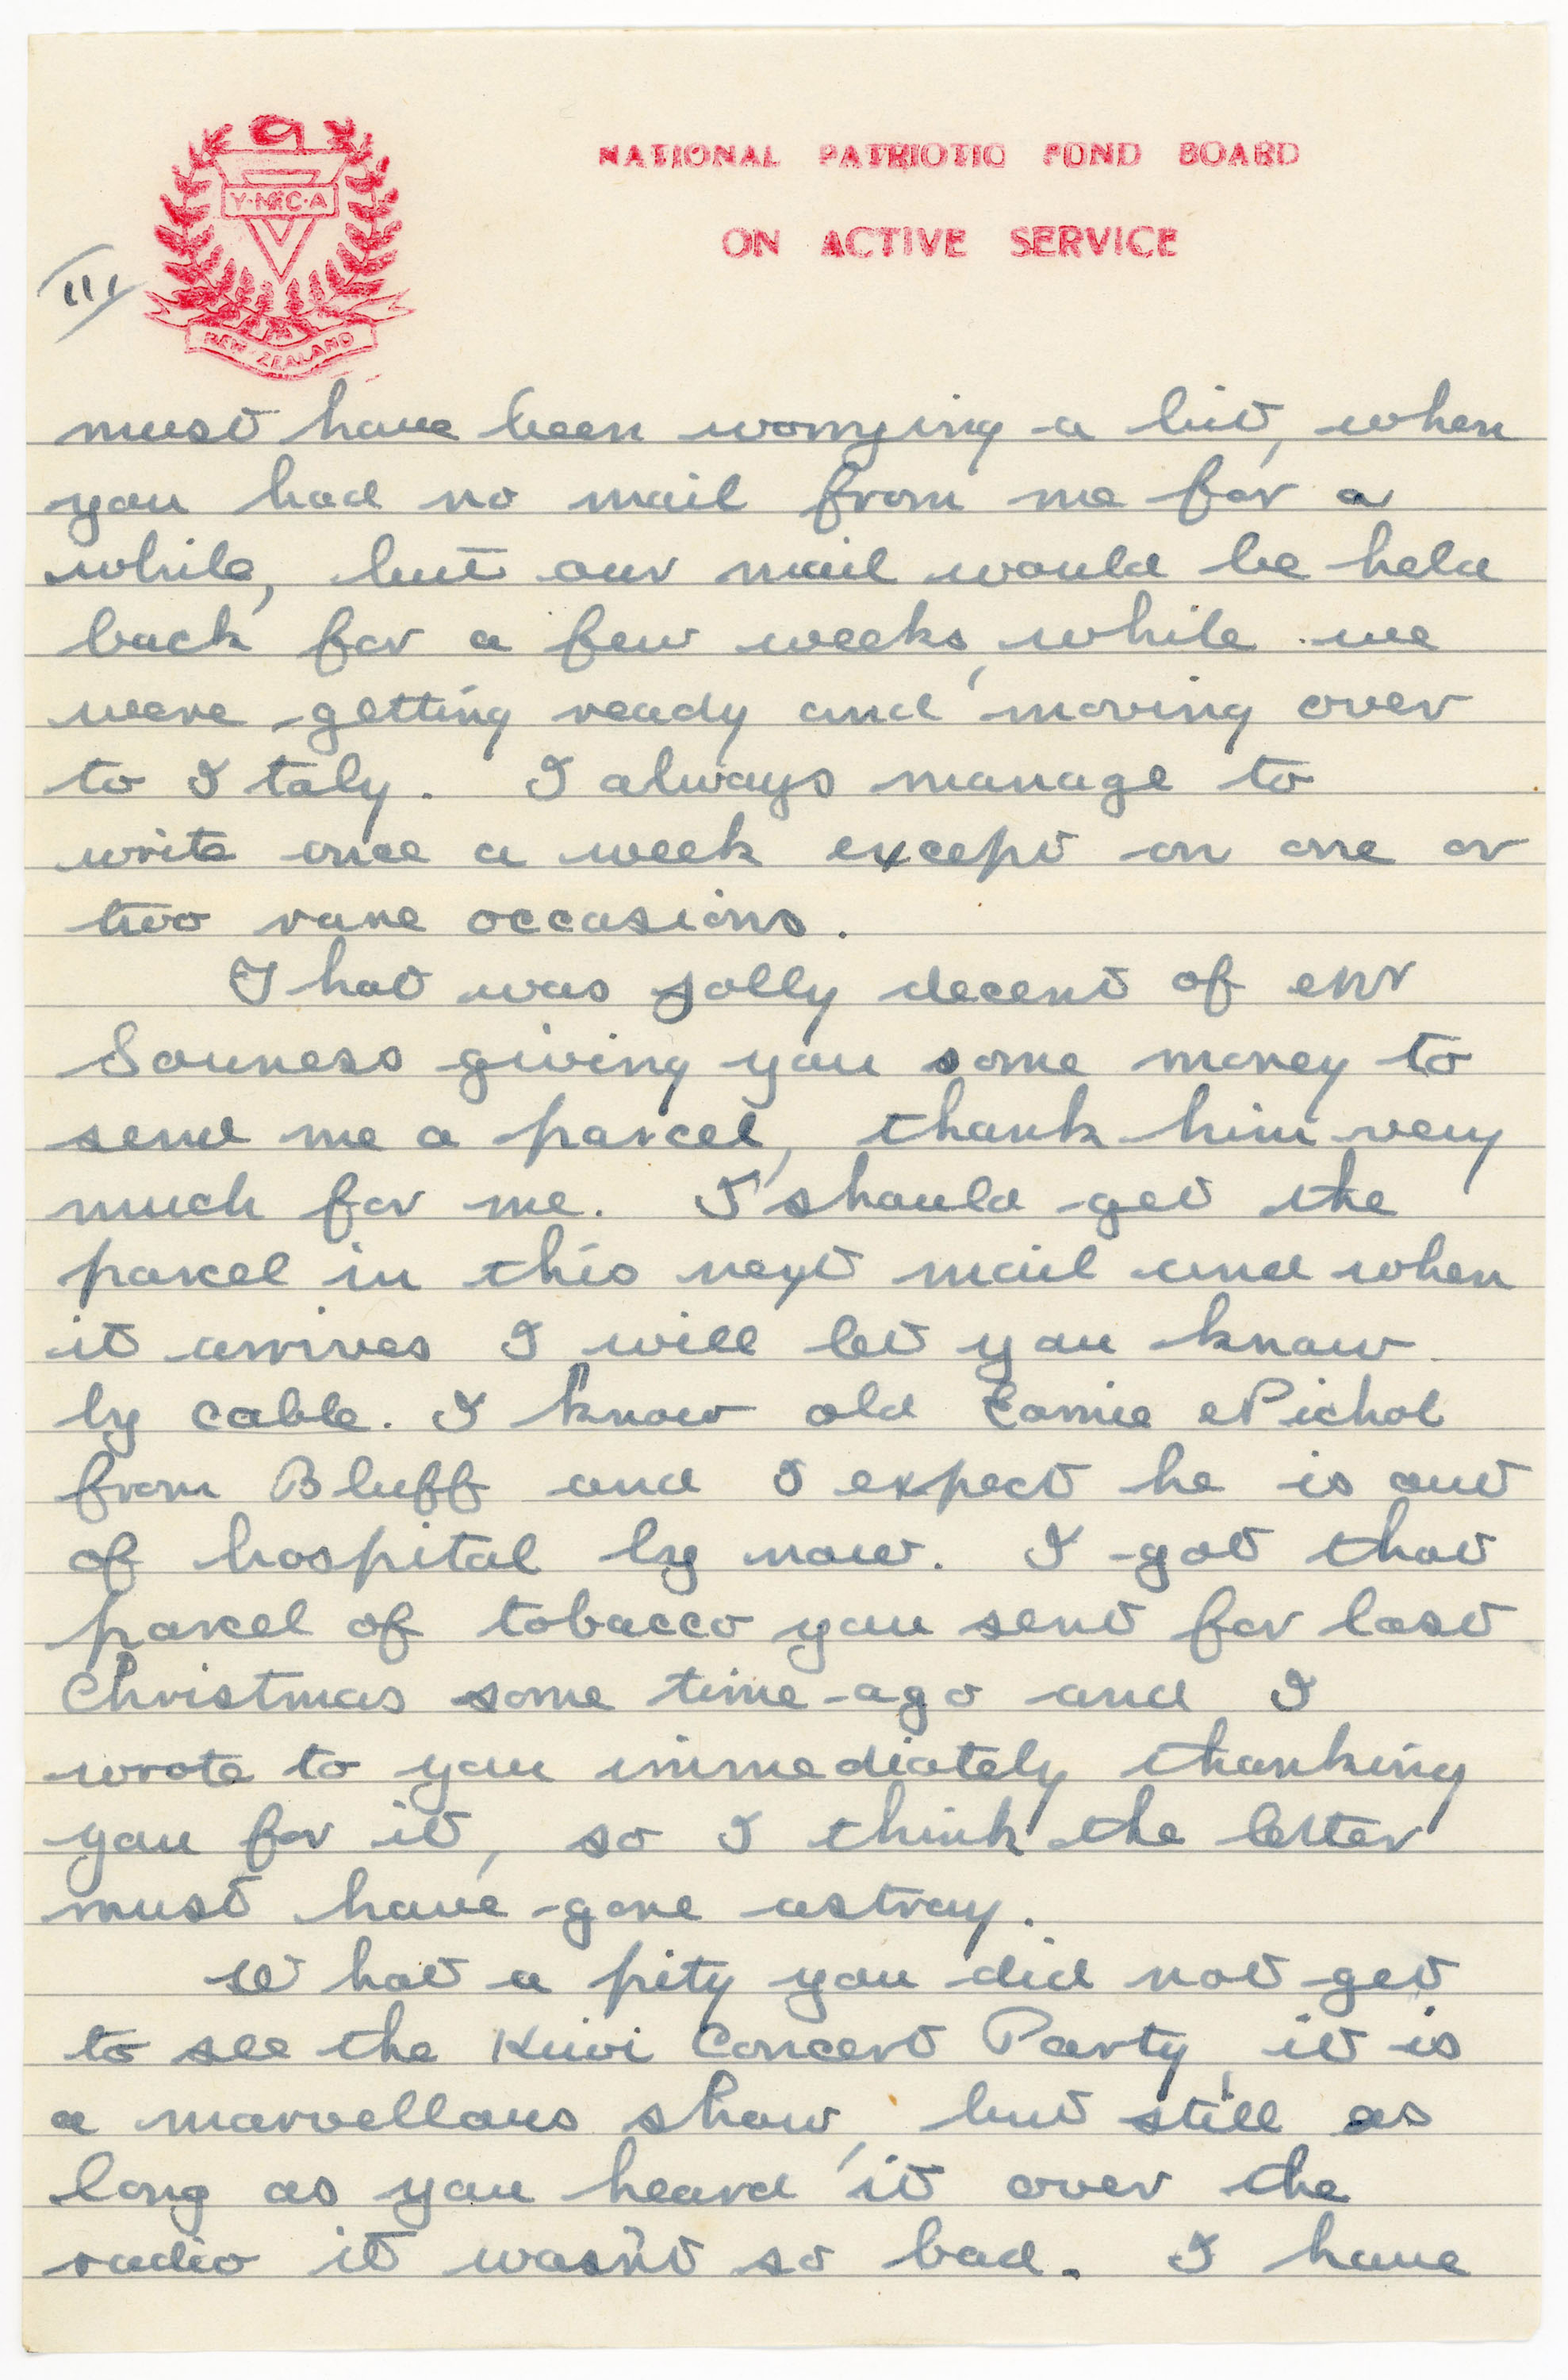 NATIONAL PATRIOTIC FUND BOARD
ON ACTIVE SERVICE
Y·M·C·A
NEW ZEALAND
III
must have been worrying a bit, when
you had no mail from me for a
while, but our mail would be held
back for a few weeks, while we
were getting ready and moving over
to Italy. I always manage to
write once a week except on one or
two rare occasions.
That was jolly decent of Mr
Souness giving you some money to
send me a parcel, thank him very
much for me. I should get the
parcel in this next mail and when
it arrives I will let you know
by cable. I know old Nichol
from Bluff and I expect he is out
of hospital by now. I got that
parcel of tobacco you sent for last
Christmas some time ago and I
wrote to you immediately thanking
you for it, so I think the letter
must have gone astray.
What a pity you did not get
to see the Kiwi Concert Party, it is
a marvellous show, but still as
long as you heard it over the
radio it wasn't so bad. I have